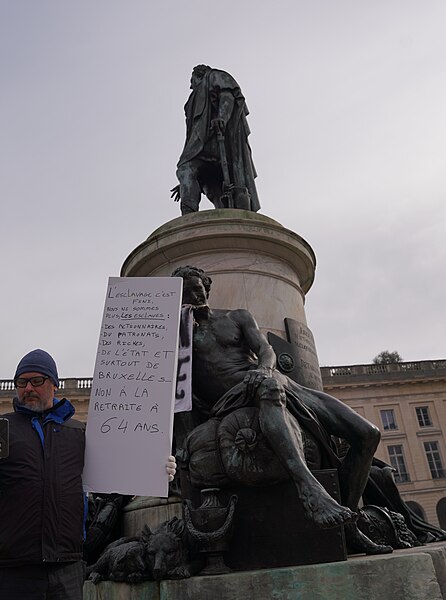 L'ESCLAVAGE C'EST
FINI.
NOUS NE SOMMES
PLUS, LES ESCLAVES :
DES ACTIONNAIRES
DU PATRONATS,
DES RICHES,
DE L'ÉTAT ET
SURTOUT DE
BRUXELLES_
NON A LA
RETRAITE A
64 ANS.